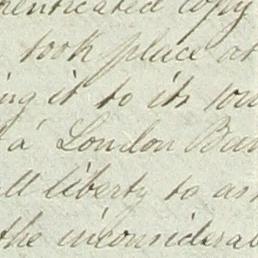 henticated copy
took place at
ing it to its
a London Ban
ll liberty to as
the inconsiderab